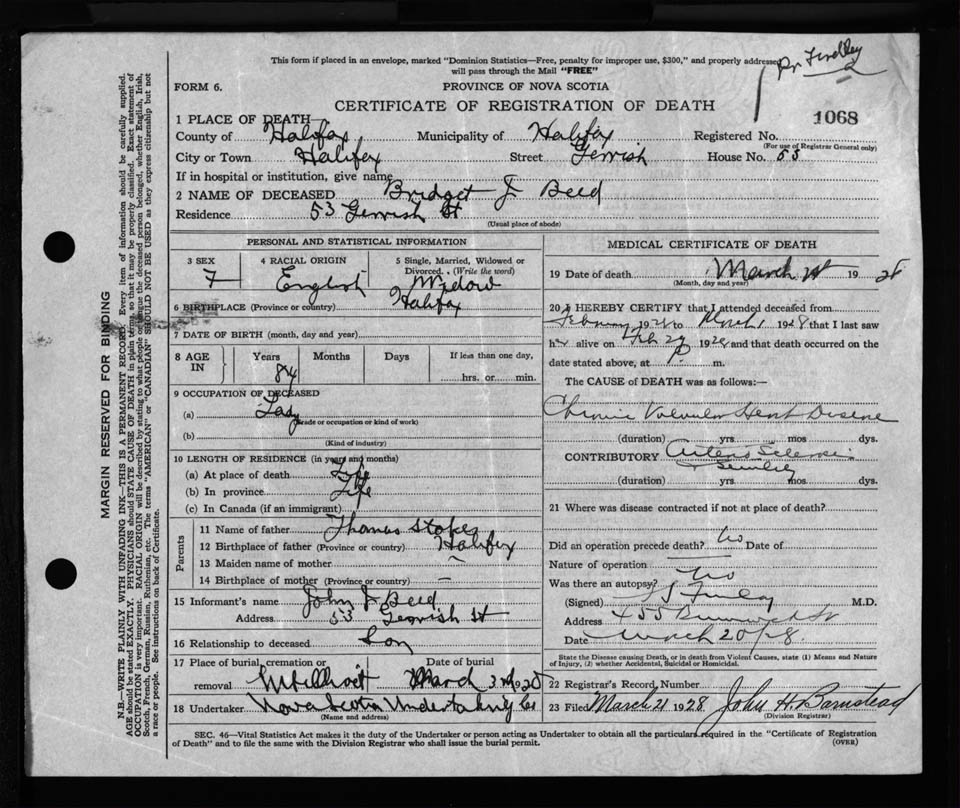 This form if placed in an envelope, marked "Dominion Statistics—Free, penalty for improper use, $300," and properly addressed
will pass through the Mail "FREE"
Dr Findlay
FORM 6.
PROVINCE OF NOVA SCOTIA
CERTIFICATE OF REGISTRATION OF DEATH
1068
1 PLACE OF DEATH
County of Halifax Municipality of Halifax Registered No.
(For use of Registrar General only)
City or Town Halifax Street Gerrish House No. 53
If in hospital or institution, give name
2 NAME OF DECEASED Bridget J Beed
Residence 53 Gerrish St
(Usual place of abode)
PERSONAL AND STATISTICAL INFORMATION
3 SEX 4 RACIAL ORIGIN 5 Single, Married, Widowed or
Divorced. (Write the word)
F English Widow
6 BIRTHPLACE (Province or country) Halifax
7 DATE OF BIRTH (month, day and year)
8 AGE IN Years Months Days If less than one day,
84 hrs. or min.
9 OCCUPATION OF DECEASED
(a) Lady
(Trade or occupation or kind of work)
(b)
(Kind of industry)
10 LENGTH OF RESIDENCE (in years and months)
(a) At place of death Life
(b) In province Life
(c) In Canada (if an immigrant)
Parents
11 Name of father Thomas Stokes
12 Birthplace of father (Province or country) Halifax
13 Maiden name of mother —
14 Birthplace of mother (Province or country) —
15 Informant's name John J Beed
Address 53 Gerrish St
16 Relationship to deceased Son
17 Place of burial, cremation or Date of burial
removal Mt Olivet March 3rd 1928
18 Undertaker Nova Scotia Undertaking Co
(Name and address)
MEDICAL CERTIFICATE OF DEATH
19 Date of death March 1st 1928
(Month, day and year)
20 I HEREBY CERTIFY that I attended deceased from
February 192 to March 1 1928 that I last saw
h alive on Feb 29 1928 and that death occurred on the
date stated above, at P. m.
The CAUSE of DEATH was as follows:—
Chronic Valvular Heart Disease
(duration) yrs. mos. dys.
CONTRIBUTORY Arterio Sclerosis
Senility
(duration) yrs. mos. dys.
21 Where was disease contracted if not at place of death?
Did an operation precede death? No Date of
Nature of operation
Was there an autopsy? No
(Signed) M.D.
Address 455 Brunswick St
Date March 20/28
State the Disease causing Death, or in death from Violent Causes, state (1) Means and Nature
of Injury, (2) whether Accidental, Suicidal or Homicidal.
22 Registrar's Record Number
23 Filed March 21 1928 John H. Barnstead
(Division Registrar)
SEC. 46—Vital Statistics Act makes it the duty of the Undertaker or person acting as Undertaker to obtain all the particulars required in the "Certificate of Registration
of Death" and to file the same with the Division Registrar who shall issue the burial permit. (OVER)
MARGIN RESERVED FOR BINDING
N.B.—WRITE PLAINLY WITH UNFADING INK—THIS IS A PERMANENT RECORD. Every item of information should be carefully supplied.
AGE should be stated EXACTLY. PHYSICIANS should STATE CAUSE OF DEATH in plain terms, so that it may be properly classified. Exact statement of
OCCUPATION is very important. RACIAL ORIGIN will be described by stating to what people or the deceased person belonged, whether English, Irish,
Scotch, French, German, Russian, Ruthenian, etc. The terms "AMERICAN" or "CANADIAN" SHOULD NOT BE USED as they express citizenship but not
a race or people. See instructions on back of Certificate.